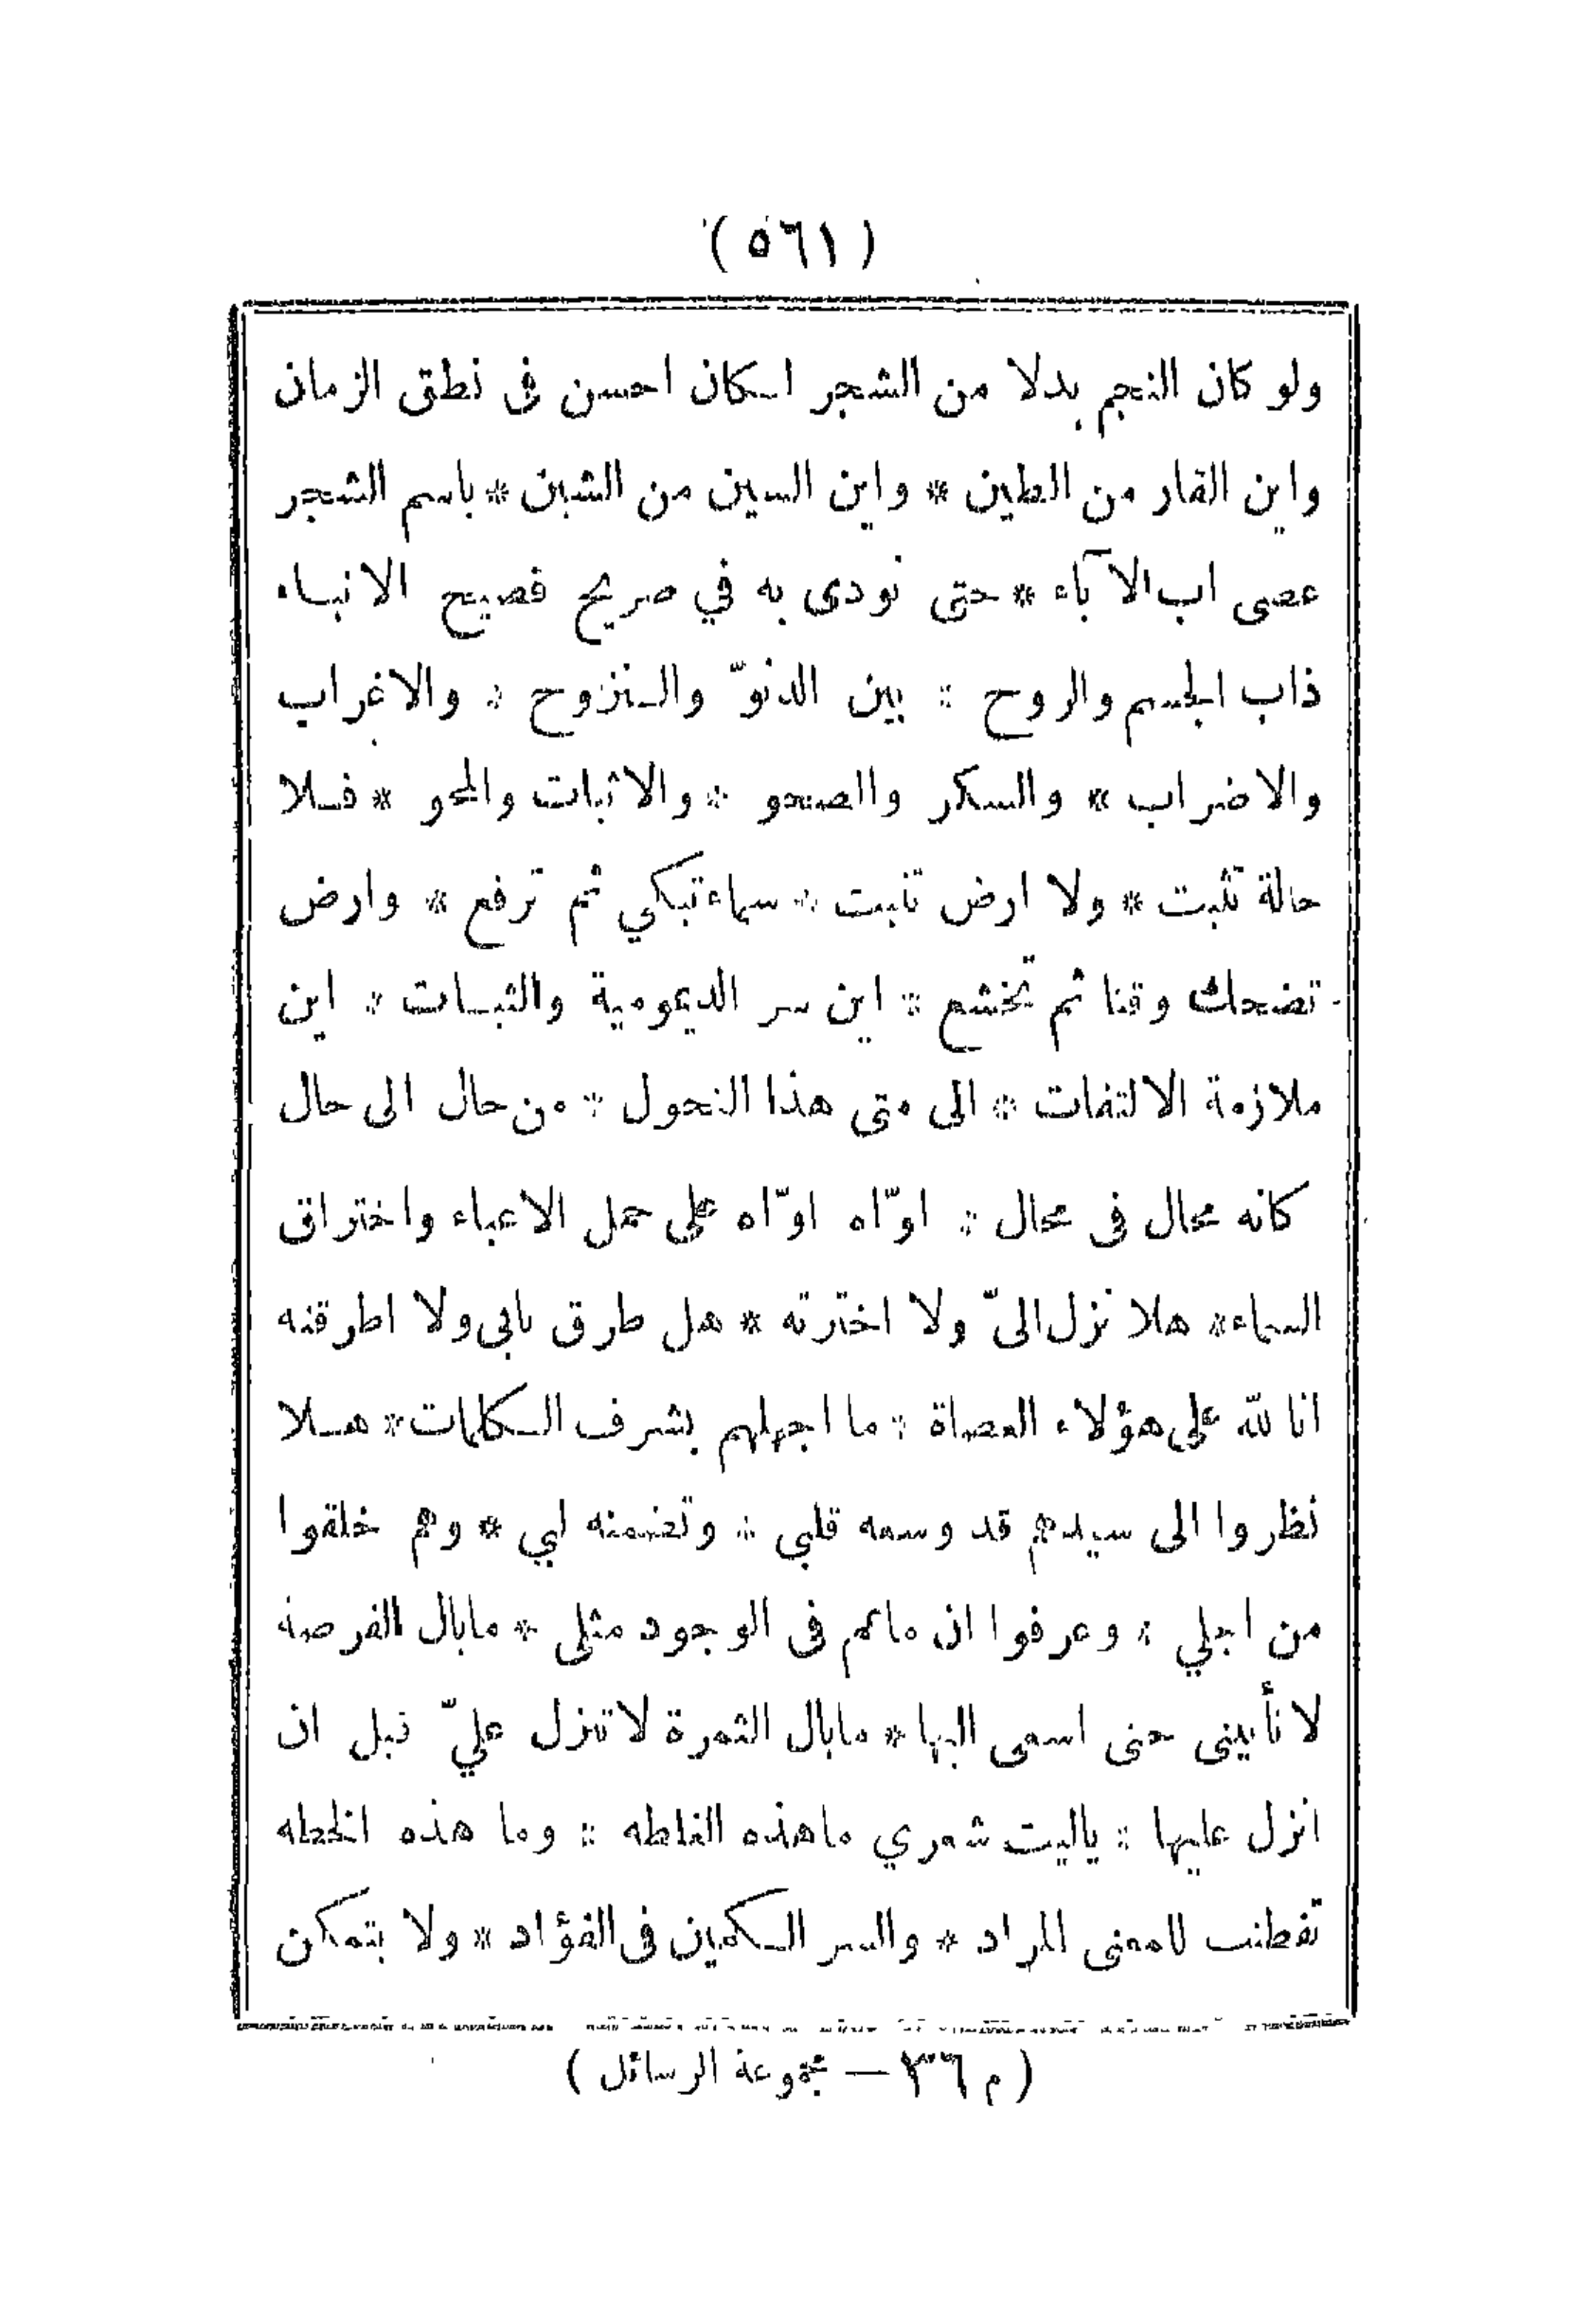 (٥٦١)
ولو كان النجم بدلا من الشجر لكان احسن فى نطق الزمان
واين القار من الطين * واين السين من الشين * باسم الشجر
عصى اب الآباء * حتى نودى به في صريح فصيح الانباء
ذاب الجسم والروح * بين الدنوّ والنزوح * والاغراب
والاضراب * والسكر والصحو * والاثبات والمحو * فلا
حالة تثبت * ولا ارض تنبت * سماء تبكي ثم ترفع * وارض
تضحك وقتا ثم تخشع * اين سر الديمومية والثبات * اين
ملازمة الالتفات * الى متى هذا التحول * من حال الى حال
كانه محال فى محال * اوّاه اوّاه على حمل الاعباء واختراق
السماء * هلا نزل الىّ ولا اخترته * هل طرق بابى ولا اطرقته
انا لله على هؤلاء العصاة * ما اجهلهم بشرف الكلمات * هلا
نظروا الى سيدهم قد وسعه قلبي * وتضمنه لبي * وهم خلقوا
من اجلي * وعرفوا ان ماثم فى الوجود مثلى * مابال الفرصة
لا تأتينى حتى اسعى اليها * مابال الثمرة لا تنزل عليّ قبل ان
انزل عليها * ياليت شعري ماهذه الغلطه * وما هذه الخطه
تفطنت للمعنى المراد * والسر الكمين فى الفؤاد * ولا يتمكن
(م ٣٦ — مجموعة الرسائل)